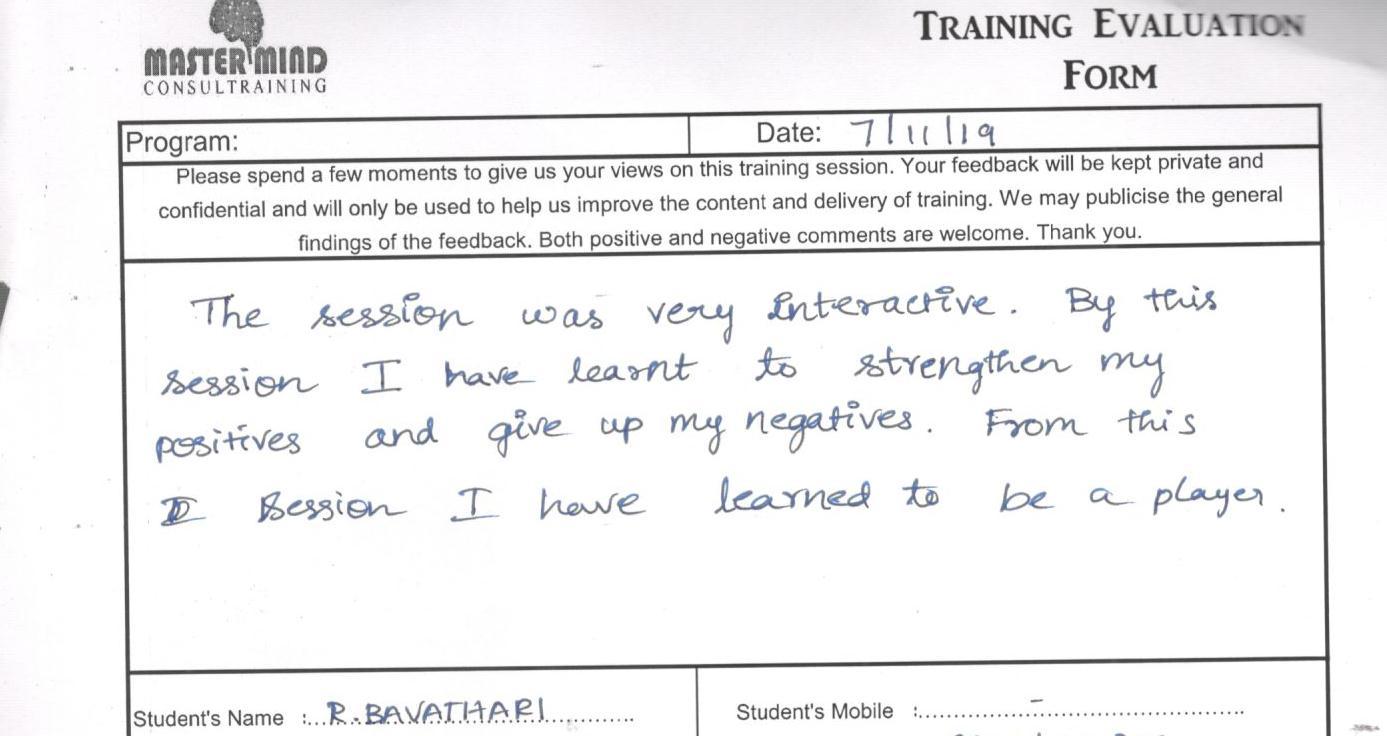 MASTER MIND
CONSULTRAINING
TRAINING EVALUATION
FORM
Program:
Date: 7/11/19
Please spend a few moments to give us your views on this training session. Your feedback will be kept private and
confidential and will only be used to help us improve the content and delivery of training. We may publicise the general
findings of the feedback. Both positive and negative comments are welcome. Thank you.
The session was very interactive. By this
session I have learnt to strengthen my
positives and give up my negatives. From this
session I have learned to be a player.
Student's Name :...R.BAVATHARI..............
Student's Mobile :.......................-.......................